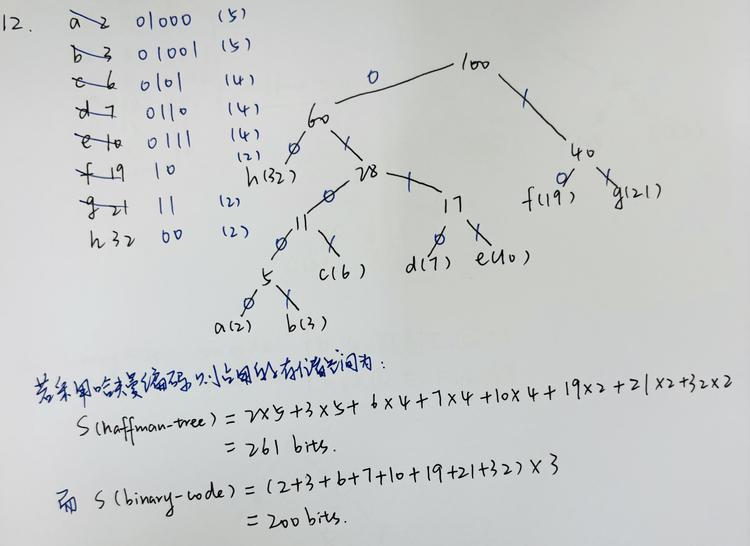 12. a 2 01000 (5)
b 3 01001 (5)
c 6 0101 (4)
d 7 0110 (4)
e 10 0111 (4)
f 19 10 (2)
g 21 11 (2)
h 32 00 (2)
100
0 1
60 40
0 1 0 1
h(32) 28 f(19) g(21)
0 1
11 17
0 1 0 1
5 c(6) d(7) e(10)
0 1
a(2) b(3)
若采用哈夫曼编码,则占用的存储空间为:
S(haffman-tree) = 2×5+3×5+6×4+7×4+10×4+19×2+21×2+32×2
= 261 bits.
而 S(binary-code) = (2+3+6+7+10+19+21+32)×3
= 200 bits.